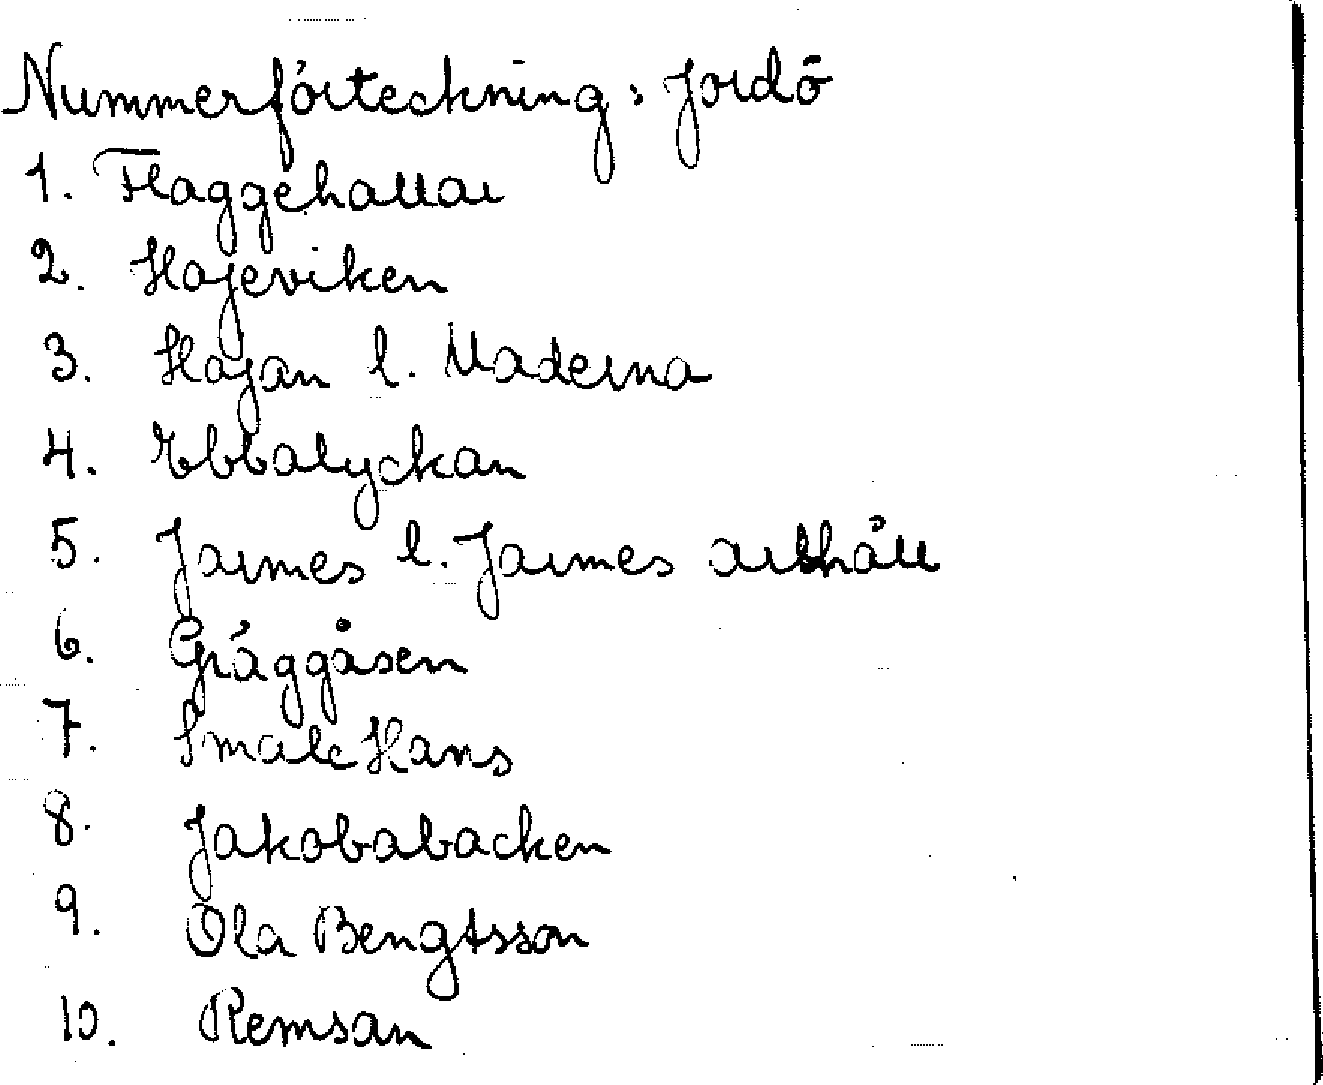 Nummerförteckning: Jordö
1. Flaggehallar
2. Hajeviken
3. Hajan l. Maderna
4. Ebbalyckan
5. Jarmes l. Jarmes arthåll
6. Gråggåsen
7. Smale Hans
8. Jakobabacken
9. Ola Bengtsson
10. Remsan